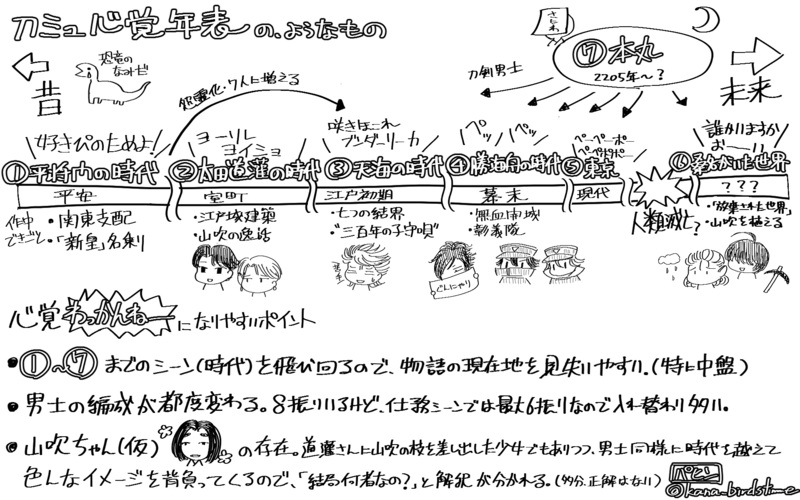 刀ミュ心覚年表の、ようなもの
さにわ
⑦本丸
2205年〜?
刀剣男士
昔
恐竜の
なみだ
怨霊化・7人に増える
未来
好きぴのためよ!
ヨーリレ
ヨイショ
咲きほこれ
ブンダーリーカ
ペッ ペッ
ペーペーポー
ペペポポー
誰かいますか
おーーい
①平将門の時代
②太田道灌の時代
③天海の時代
④勝海舟の時代
⑤東京
⑥桑名がいた世界
平安
室町
江戸初期
幕末
現代
人類滅亡?
???
作中
できごと
・関東支配
・「新皇」名乗り
・江戸城建築
・山吹の逸話
・七つの結界
・"三百年の子守唄"
・無血開城
・彰義隊
・"放棄された世界"
・山吹を植える
ぐんにゃり
心覚わっかんねーになりやすいポイント
・①〜⑦までのシーン(時代)を飛び回るので、物語の現在地を見失いやすい。(特に中盤)
・男士の編成が都度変わる。8振りいるけど、任務シーンでは最大6振りなので入れ替わり多い。
・山吹ちゃん(仮)の存在。道灌さんに山吹の枝を差し出した少女でもありつつ、男士同様に時代を越えて
色んなイメージを背負ってくるので、「結局何者なの?」と解釈が分かれる。(多分、正解はない)
@kana_birdstime